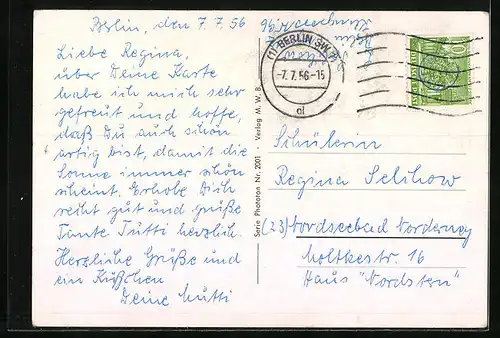 Berlin, den 7.7.56
Liebe Regina,
über Deine Karte
habe ich mich sehr
gefreut und hoffe,
daß Du auch schön
artig bist, damit die
Sonne immer schön
scheint. Erhole Dich
recht gut und grüße
Tante Tutti herzlich.
Herzliche Grüße und
ein Küßchen
Deine Mutti
(1) BERLIN SW
-7.7.56-15
Serie Phototon Nr. 2001 · Verlag M. W. B.
10
Schülerin
Regina Selchow
(23) Nordseebad Norderney
Moltkestr. 16
Haus "Nordstern"